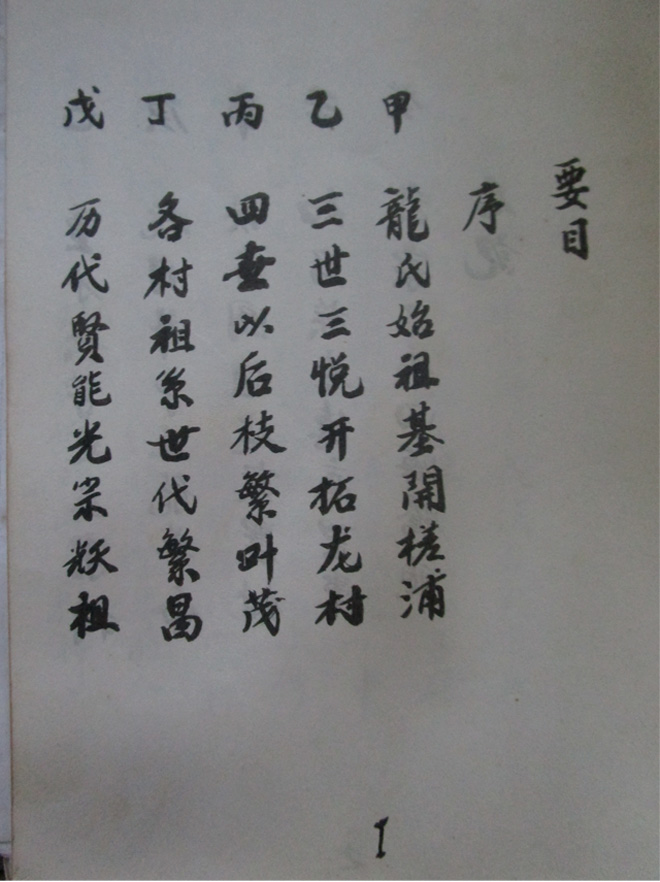 要目
序
甲 龍氏始祖基開槎浦
乙 三世三悦开拓龙村
丙 四世以后枝繁叶茂
丁 各村祖系世代繁昌
戊 历代賢能光宗耀祖
I